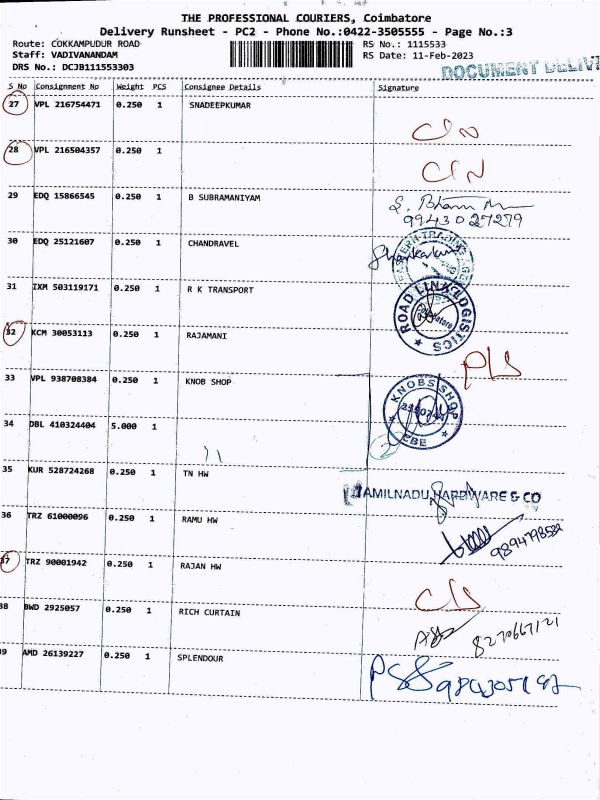 THE PROFESSIONAL COURIERS, Coimbatore
Delivery Runsheet - PC2 - Phone No.:0422-3505555 - Page No.:3
Route: COKKAMPUDUR ROAD
RS No.: 1115533
Staff: VADIVANANDAM
RS Date: 11-Feb-2023
DRS No.: DCJB111553303
DOCUMENT DELIV
S No Consignment No Weight PCS Consignee Details Signature
27 VPL 216754471 0.250 1 SNADEEPKUMAR
28 VPL 216504357 0.250 1
29 EDQ 15866545 0.250 1 B SUBRAMANIYAM
9943027279
30 EDQ 25121607 0.250 1 CHANDRAVEL
31 IXM 503119171 0.250 1 R K TRANSPORT ROAD LINK LOGISTICS
32 KCM 30053113 0.250 1 RAJAMANI
33 VPL 938708384 0.250 1 KNOB SHOP KNOBS SHOP
34 DBL 410324404 5.000 1 "
CBE
35 KUR 528724268 0.250 1 TN HW
TAMILNADU HARDWARE & CO
36 TRZ 61000096 0.250 1 RAMU HW
37 TRZ 90001942 0.250 1 RAJAN HW
38 BWD 2925057 0.250 1 RICH CURTAIN
8270667121
39 AMD 26139227 0.250 1 SPLENDOUR